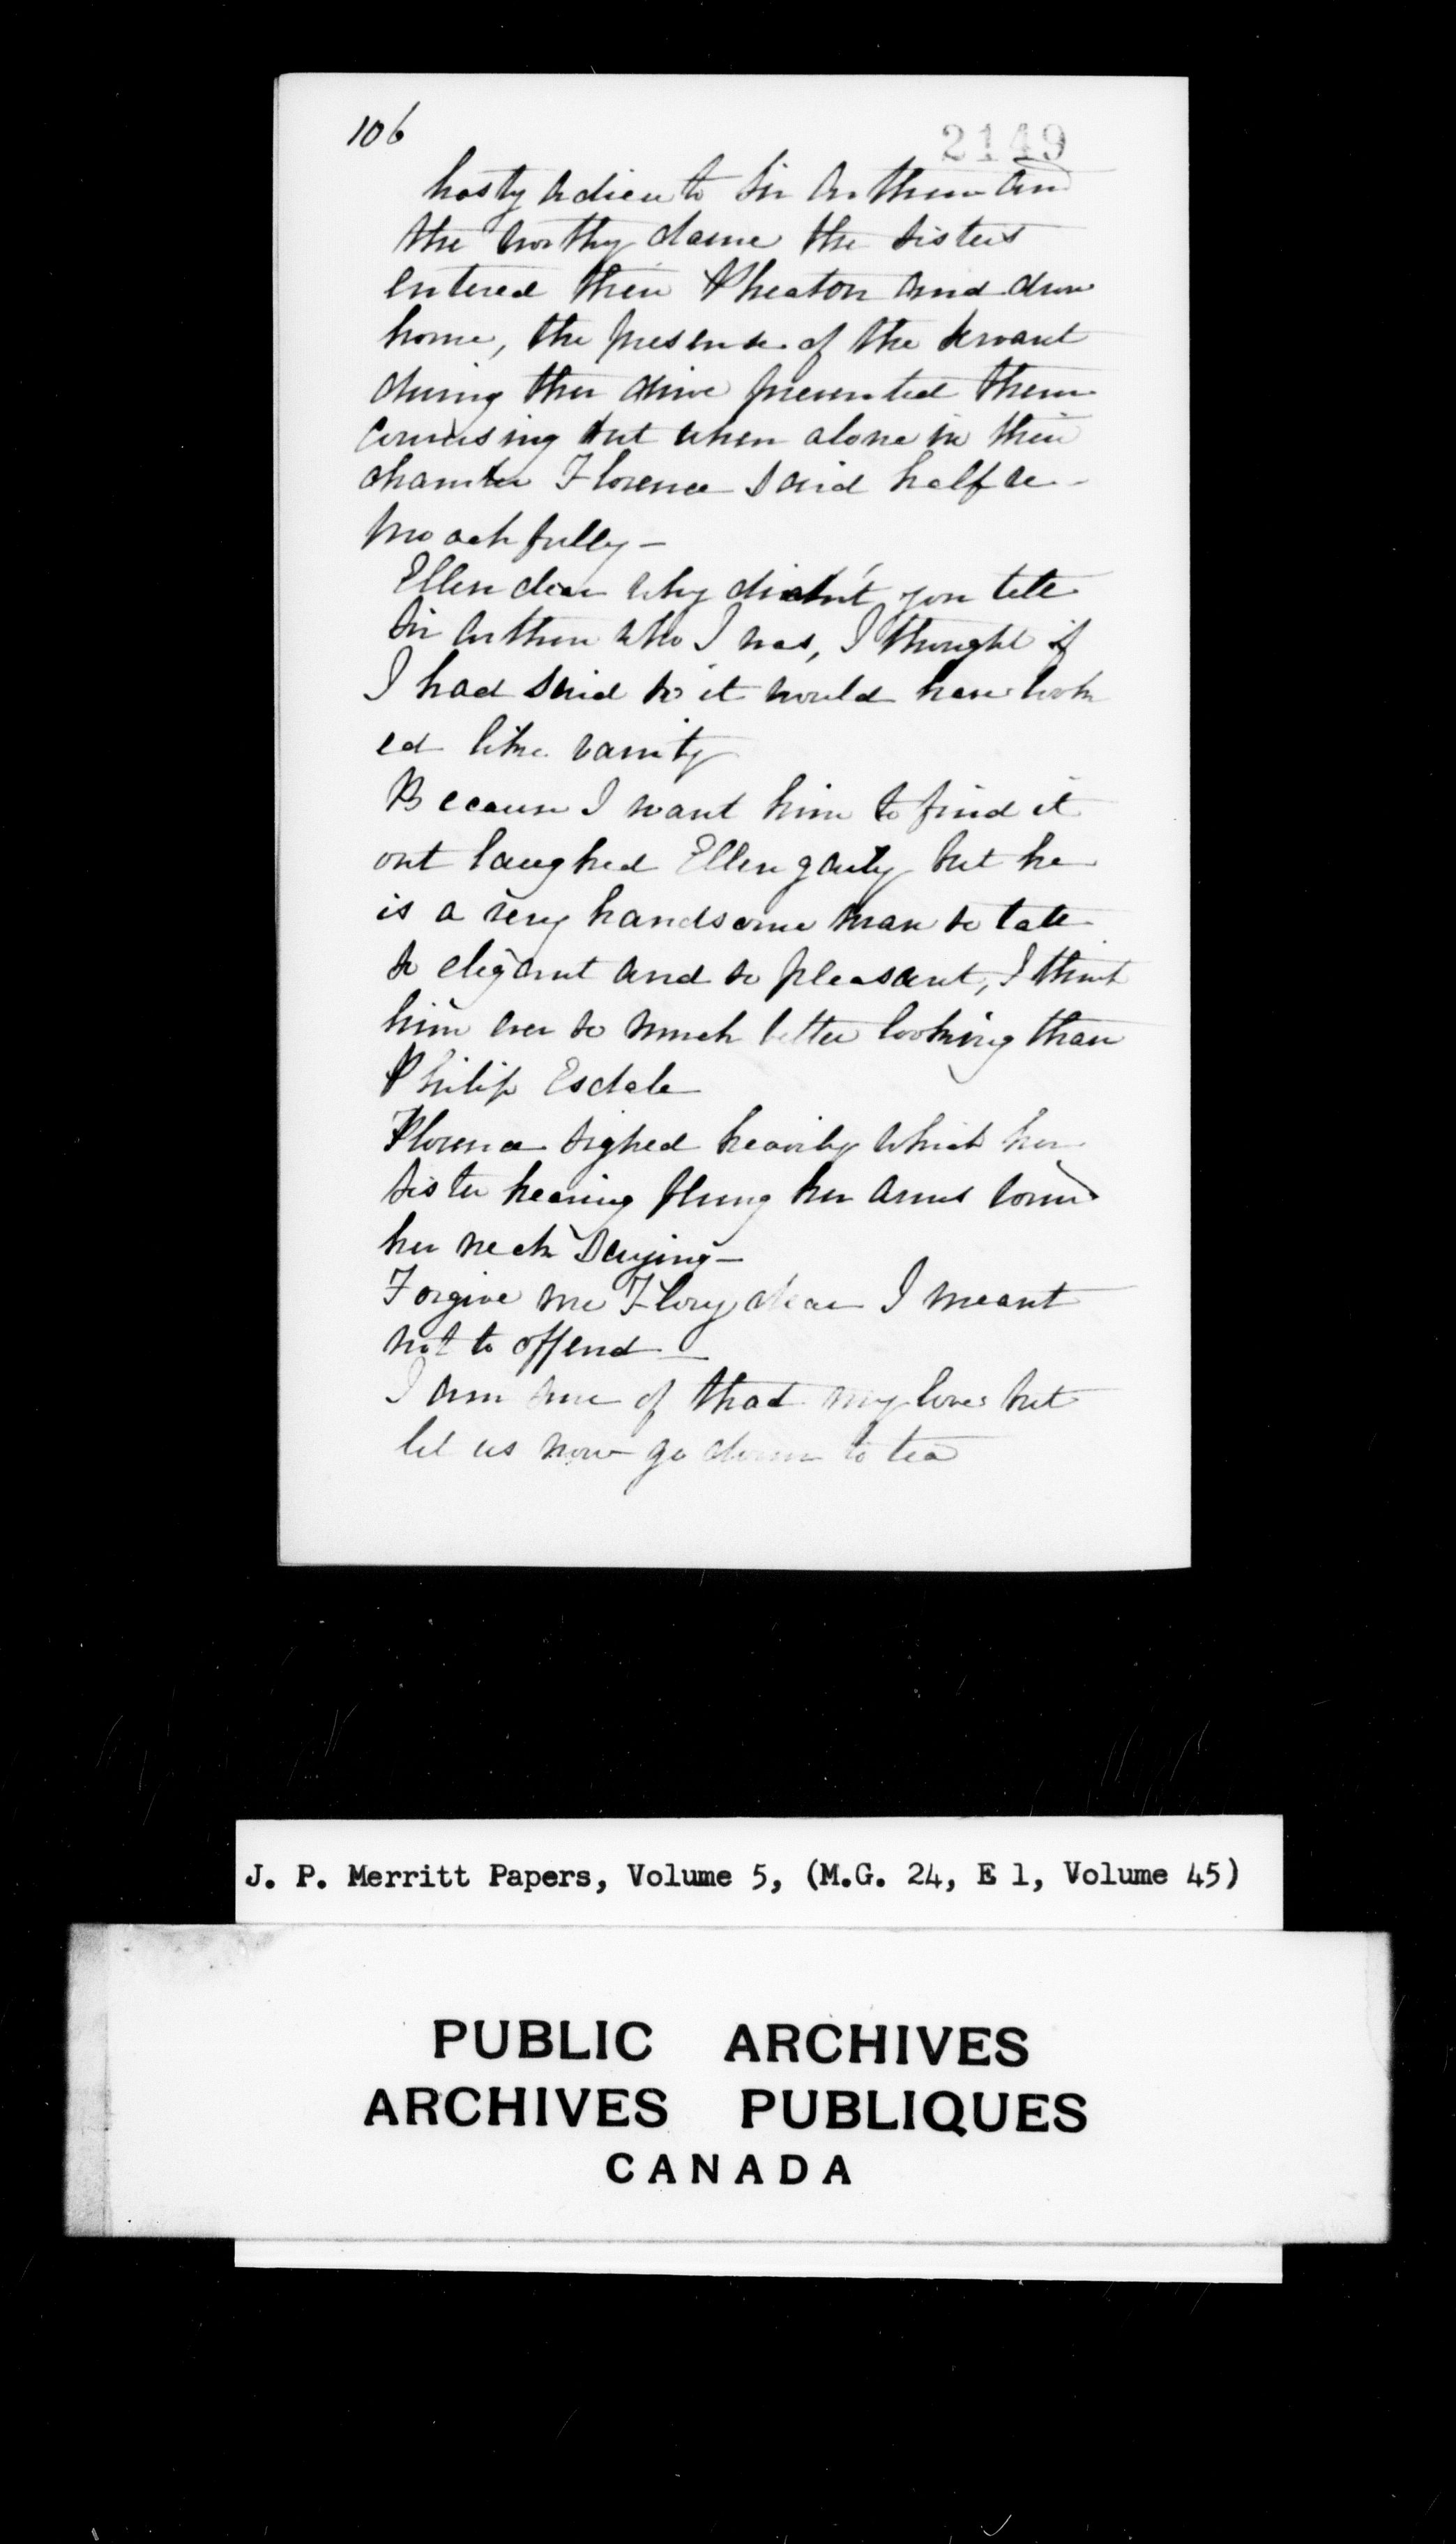 106
2149
hasty adieu to Sir Arthur and
the worthy dame the sisters
entered their Pheaton and drove
home, the presense of the servant
during their drive prevented them
conversing but when alone in their
chamber Florence said half re-
proachfully —
Ellen dear why didn't you tell
Sir Arthur who I was, I thought if
I had said so it would have look
ed like vanity
Because I want him to find it
out laughed Ellen gaily but he
is a very handsome man so tall
so elegant and so pleasant, I think
him ever so much better looking than
Philip Esdale
Florence sighed heavily which her
sister hearing flung her arms round
her neck saying —
Forgive me Flory dear I meant
not to offend —
I am sure of that my love but
let us now go down to tea
J. P. Merritt Papers, Volume 5, (M.G. 24, E 1, Volume 45)
PUBLIC ARCHIVES
ARCHIVES PUBLIQUES
CANADA